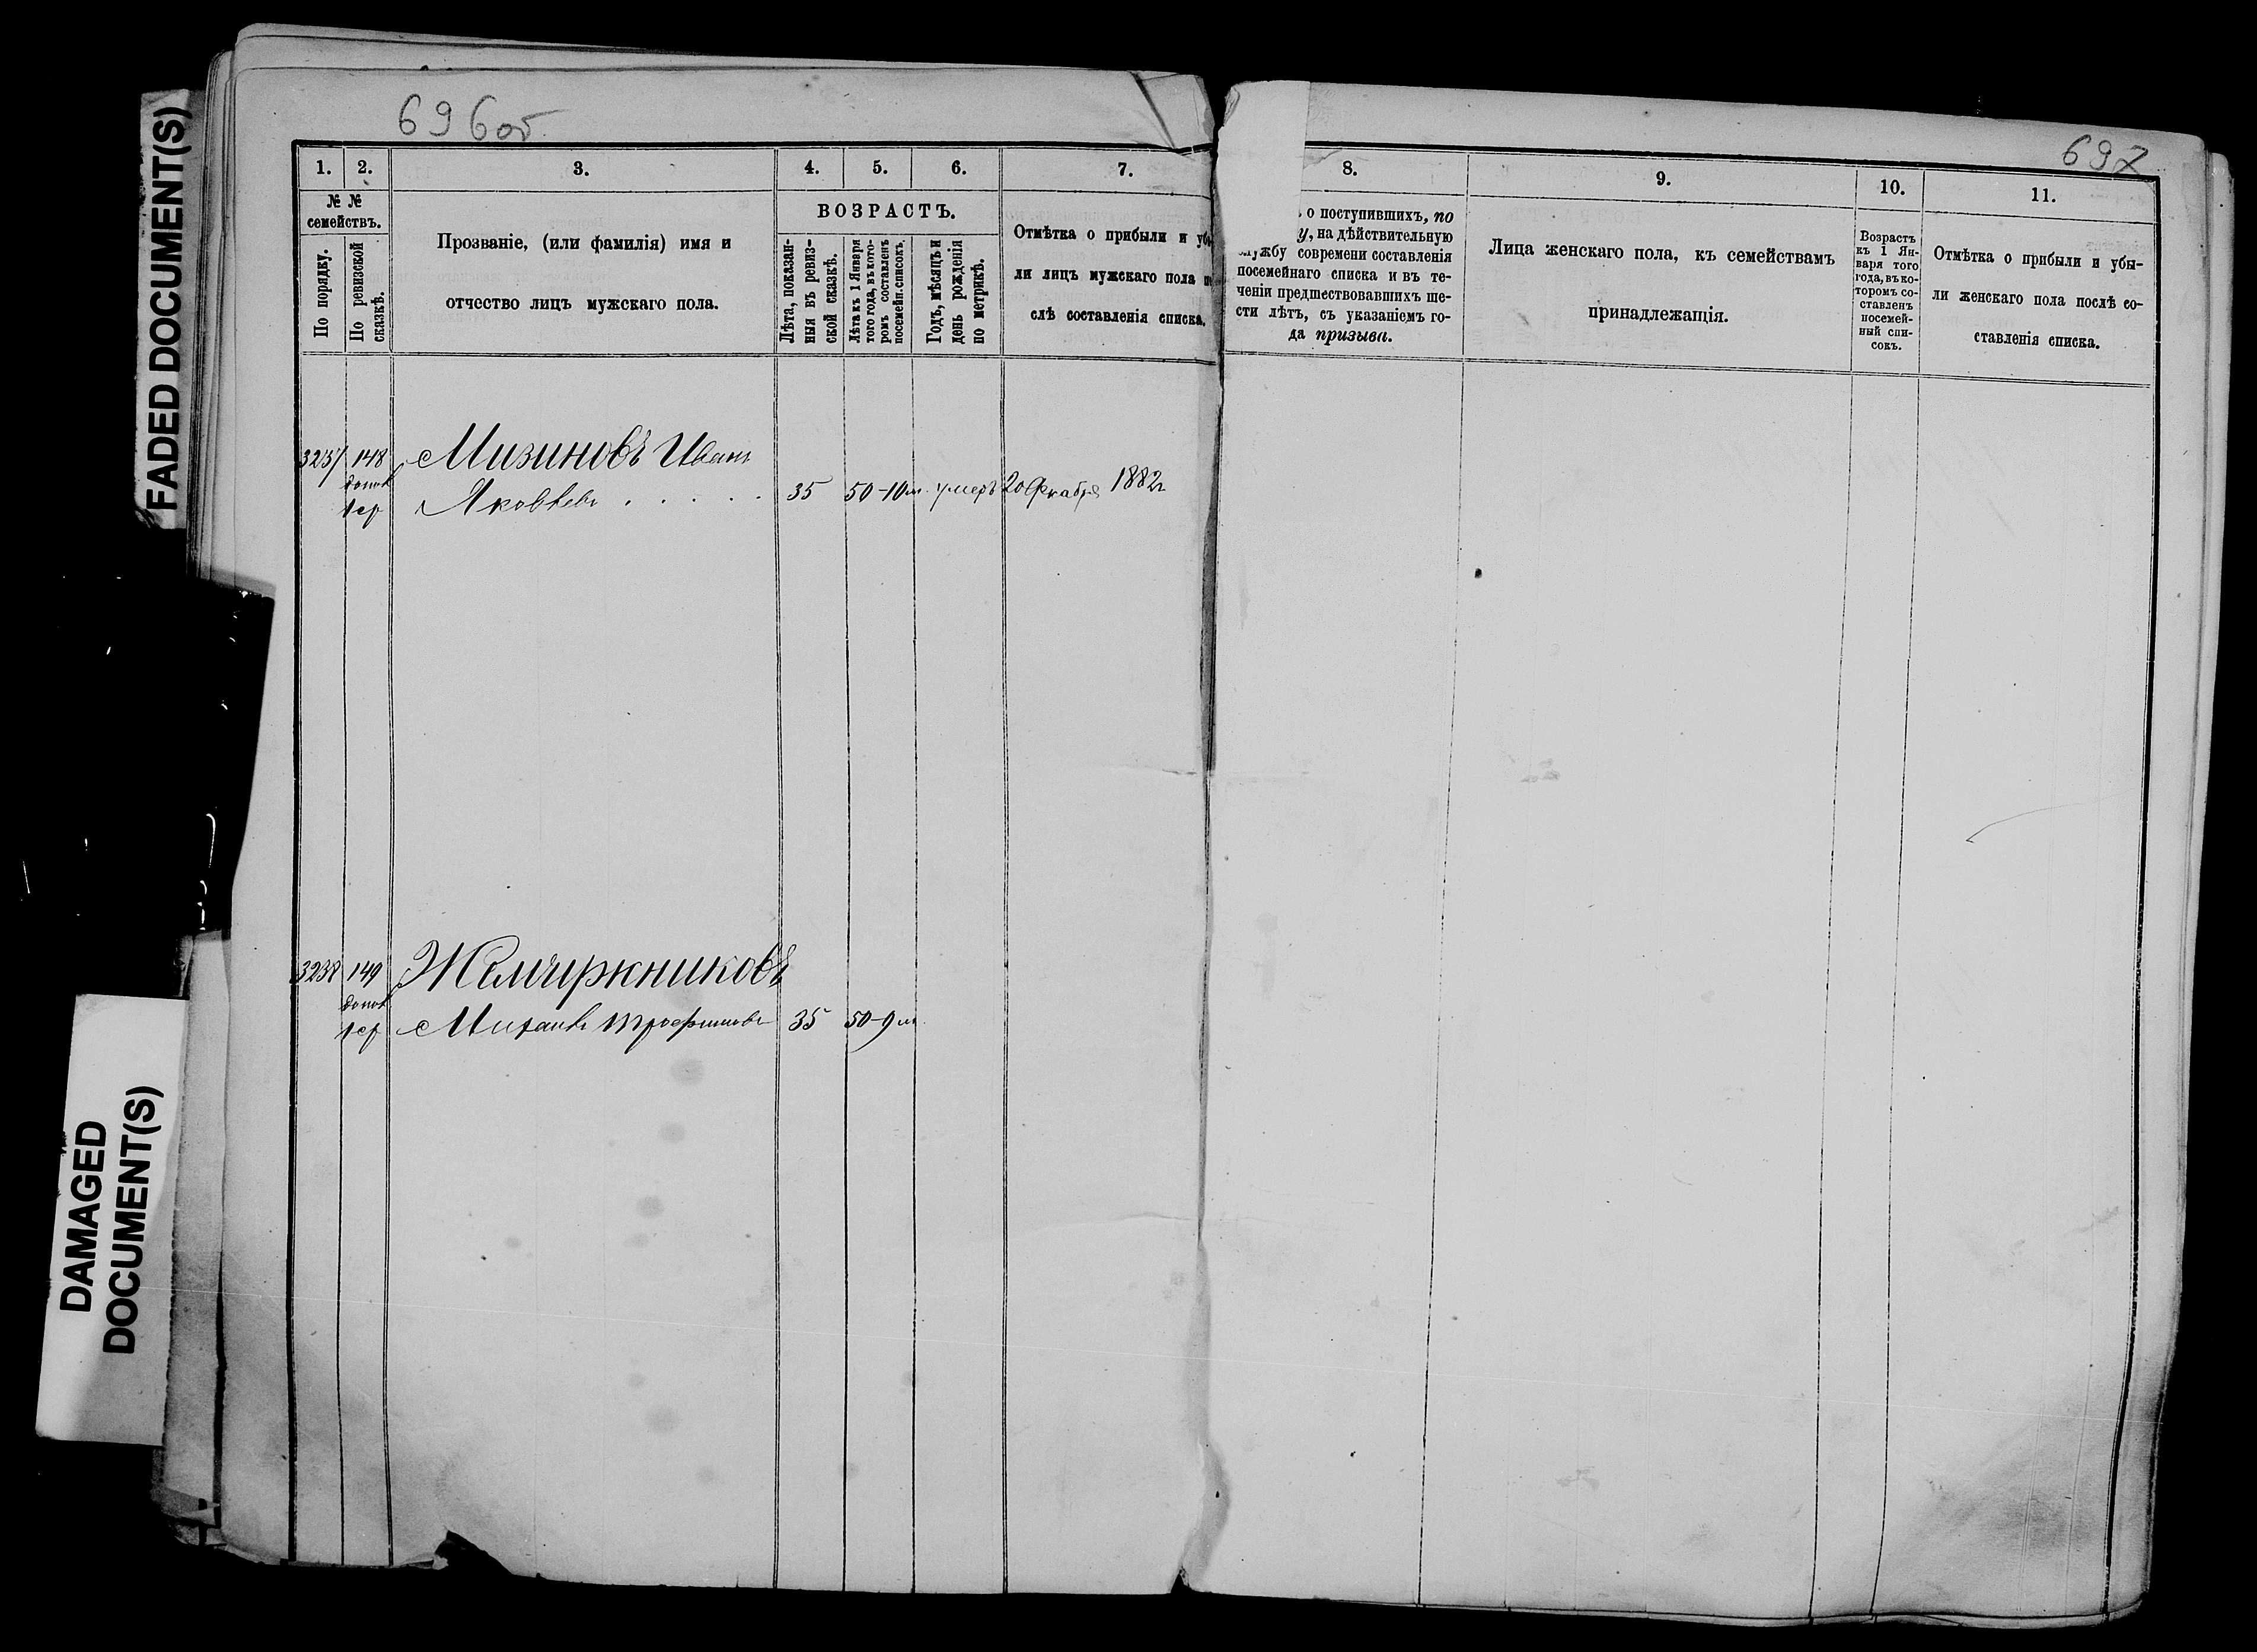 FADED DOCUMENT(S)
DAMAGED
DOCUMENT(S)
696об
697
1.
2.
3.
4.
5.
6.
7.
8.
9.
10.
11.
№ №
семействъ.
По порядку.
По ревизской
сказкѣ.
Прозваніе, (или фамилія) имя и
отчество лицъ мужскаго пола.
ВОЗРАСТЪ.
Лѣта, показан-
ныя въ ревиз-
ской сказкѣ.
Лѣта къ 1 Января
того года, въ кото-
ромъ составленъ
посемейн. списокъ.
Годъ, мѣсяцъ и
день рожденія
по метрикѣ.
Отмѣтка о прибыли и
ли лицъ мужскаго пола
слѣ составленія списка.
о поступившихъ, по
у, на дѣйствительную
службу современи составленія
посемейнаго списка и въ те-
ченіи предшествовавшихъ ше-
сти лѣтъ, съ указаніемъ го-
да призыва.
Лица женскаго пола, къ семействамъ
принадлежащія.
Возрастъ
къ 1 Ян-
варя того
года, въ ко-
торомъ со-
ставленъ
посемей-
ный спи-
сокъ.
Отмѣтка о прибыли и убы-
ли женскаго пола послѣ со-
ставленія списка.
3237 148 Мизиновъ Иванъ
допол
1 ср Яковлевъ . . . . . 35 50-10м. умеръ 20 Декабря 1882г
3238 149 Жемчужниковъ
допол
1 ср Михаилъ Трофимовъ 35 50-9м